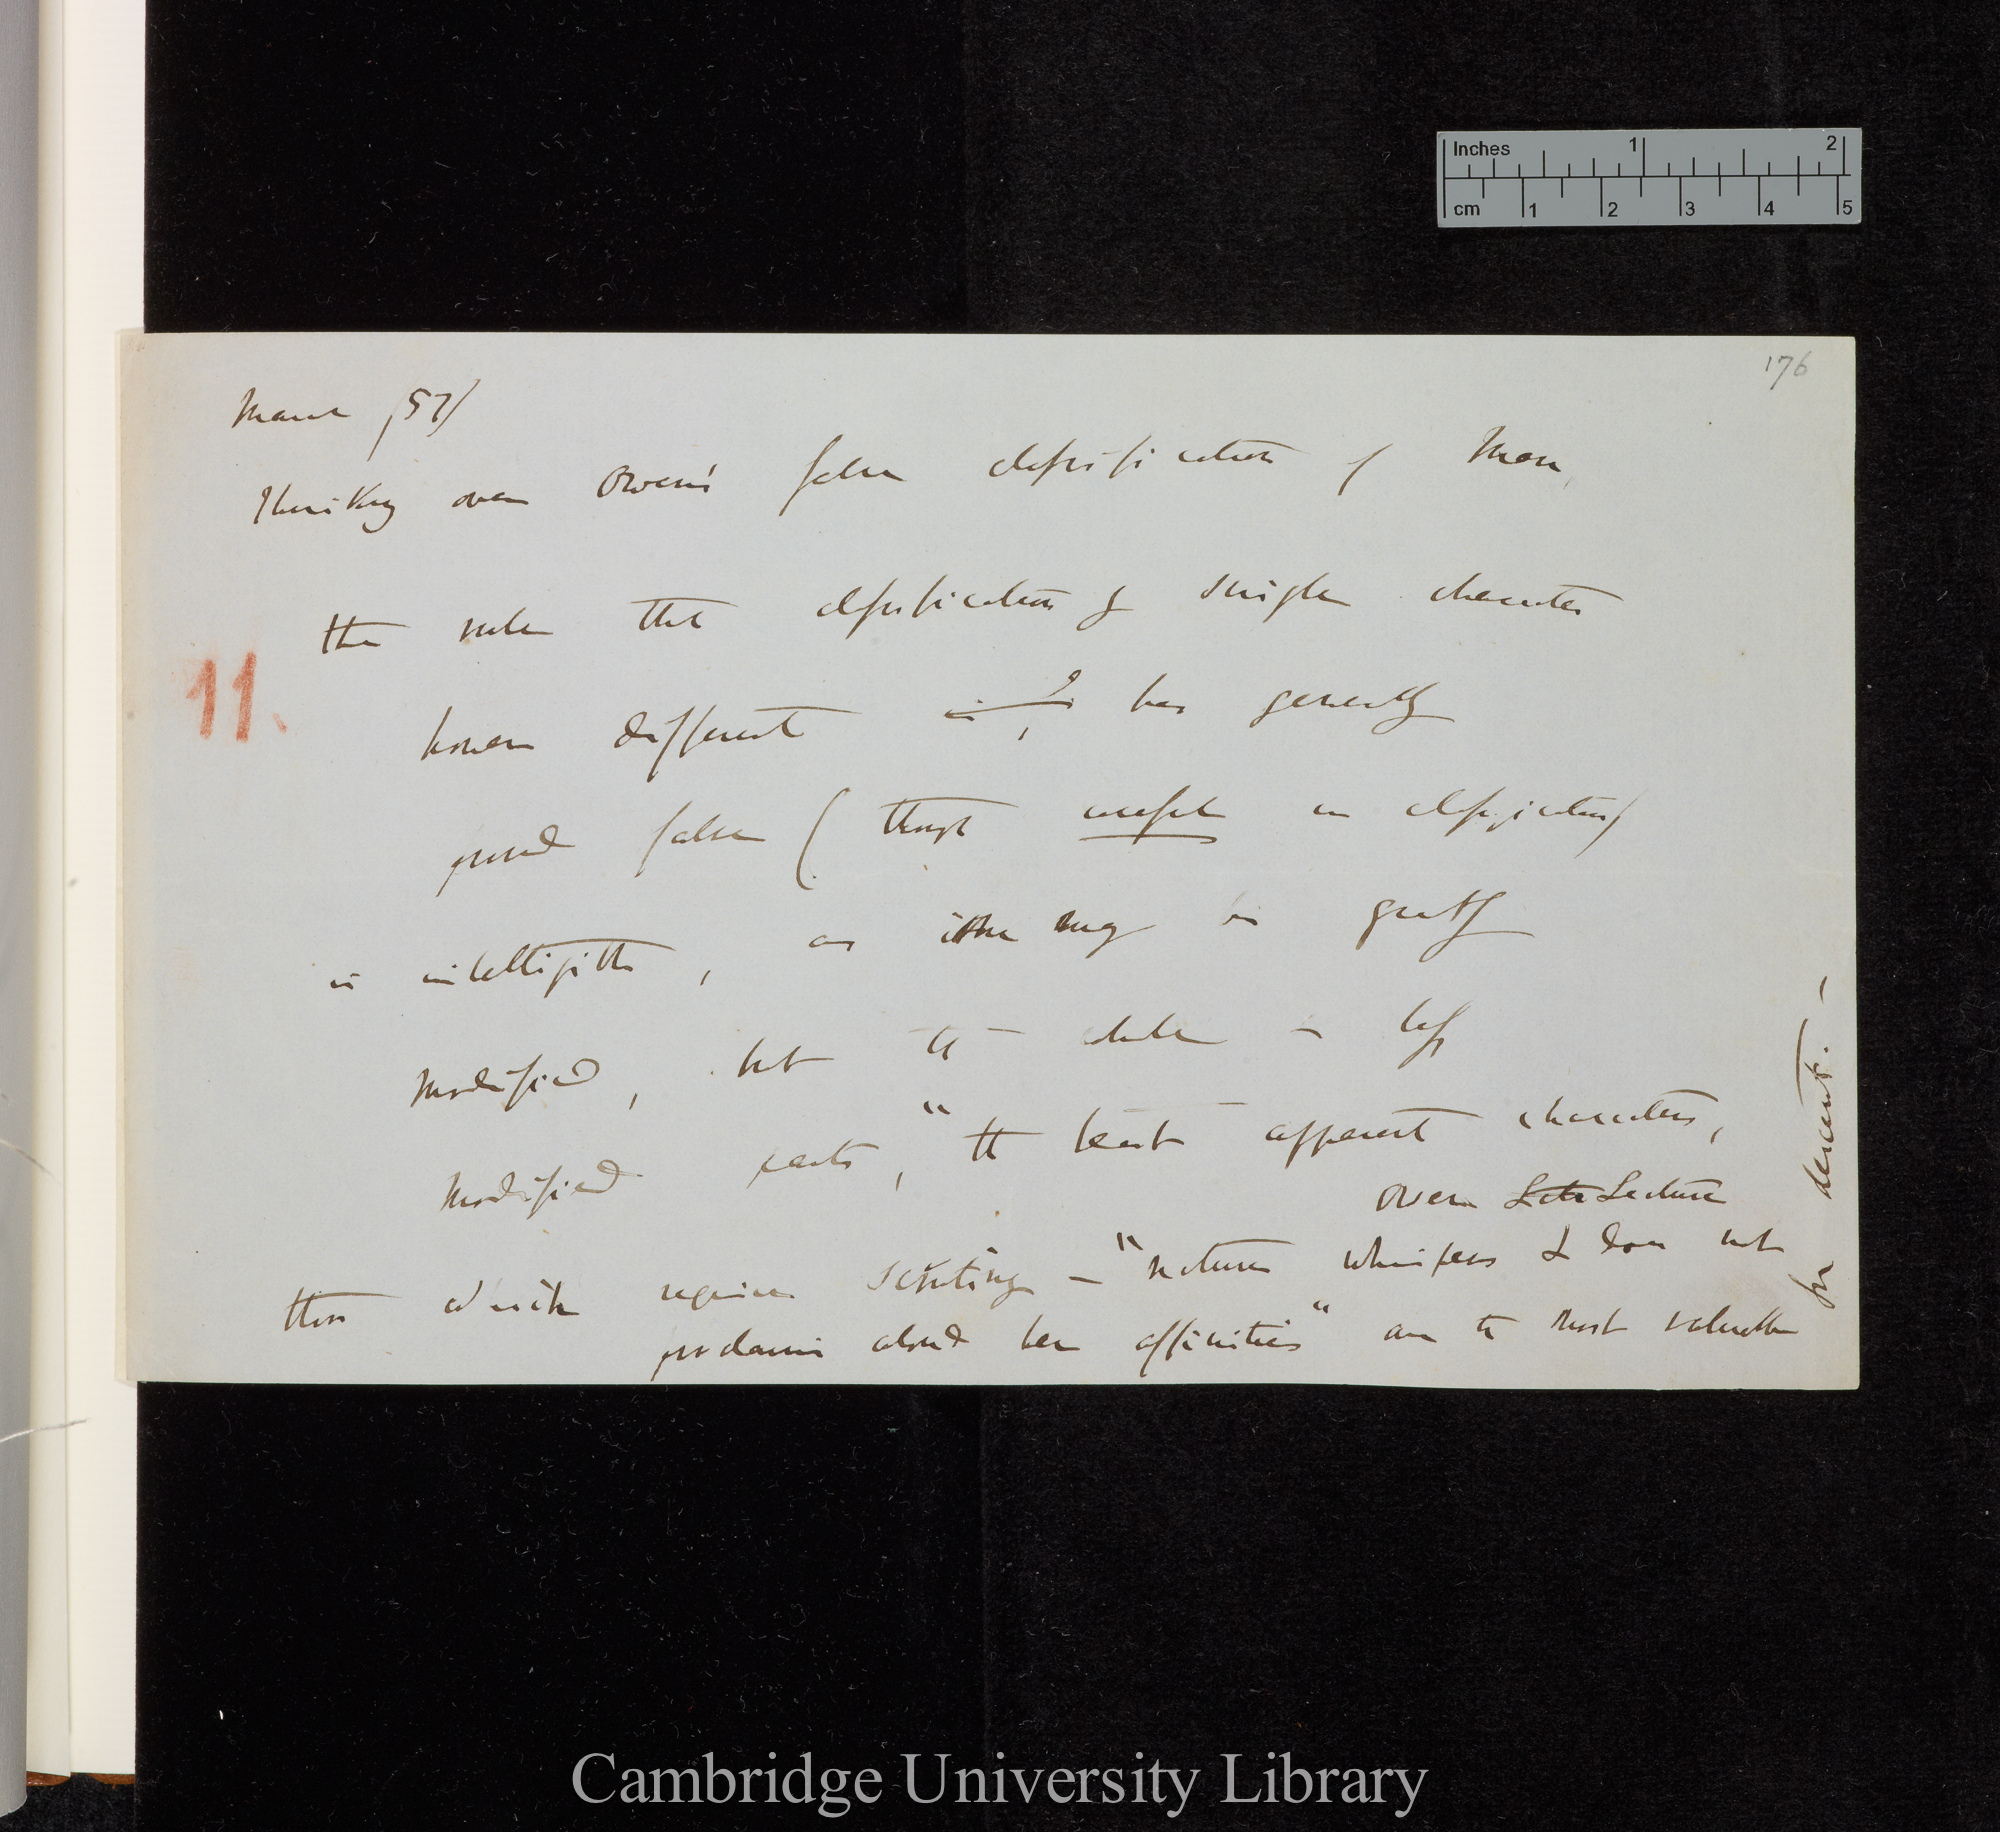 176
March /57/
Thinking over Owen's false classification of Man,
the rule that classification by single character
however different is, has generally
proved false (though useful in classification)
11.
is intelligible, as one may be greatly
modified, but the whole in less
modified parts, "the least apparent characters,
Owen Lecture
those which require seeking — "nature whispers & does not
proclaim aloud her affinities" are the most valuable
for descent. —
Inches 1 2
cm 1 2 3 4 5
Cambridge University Library